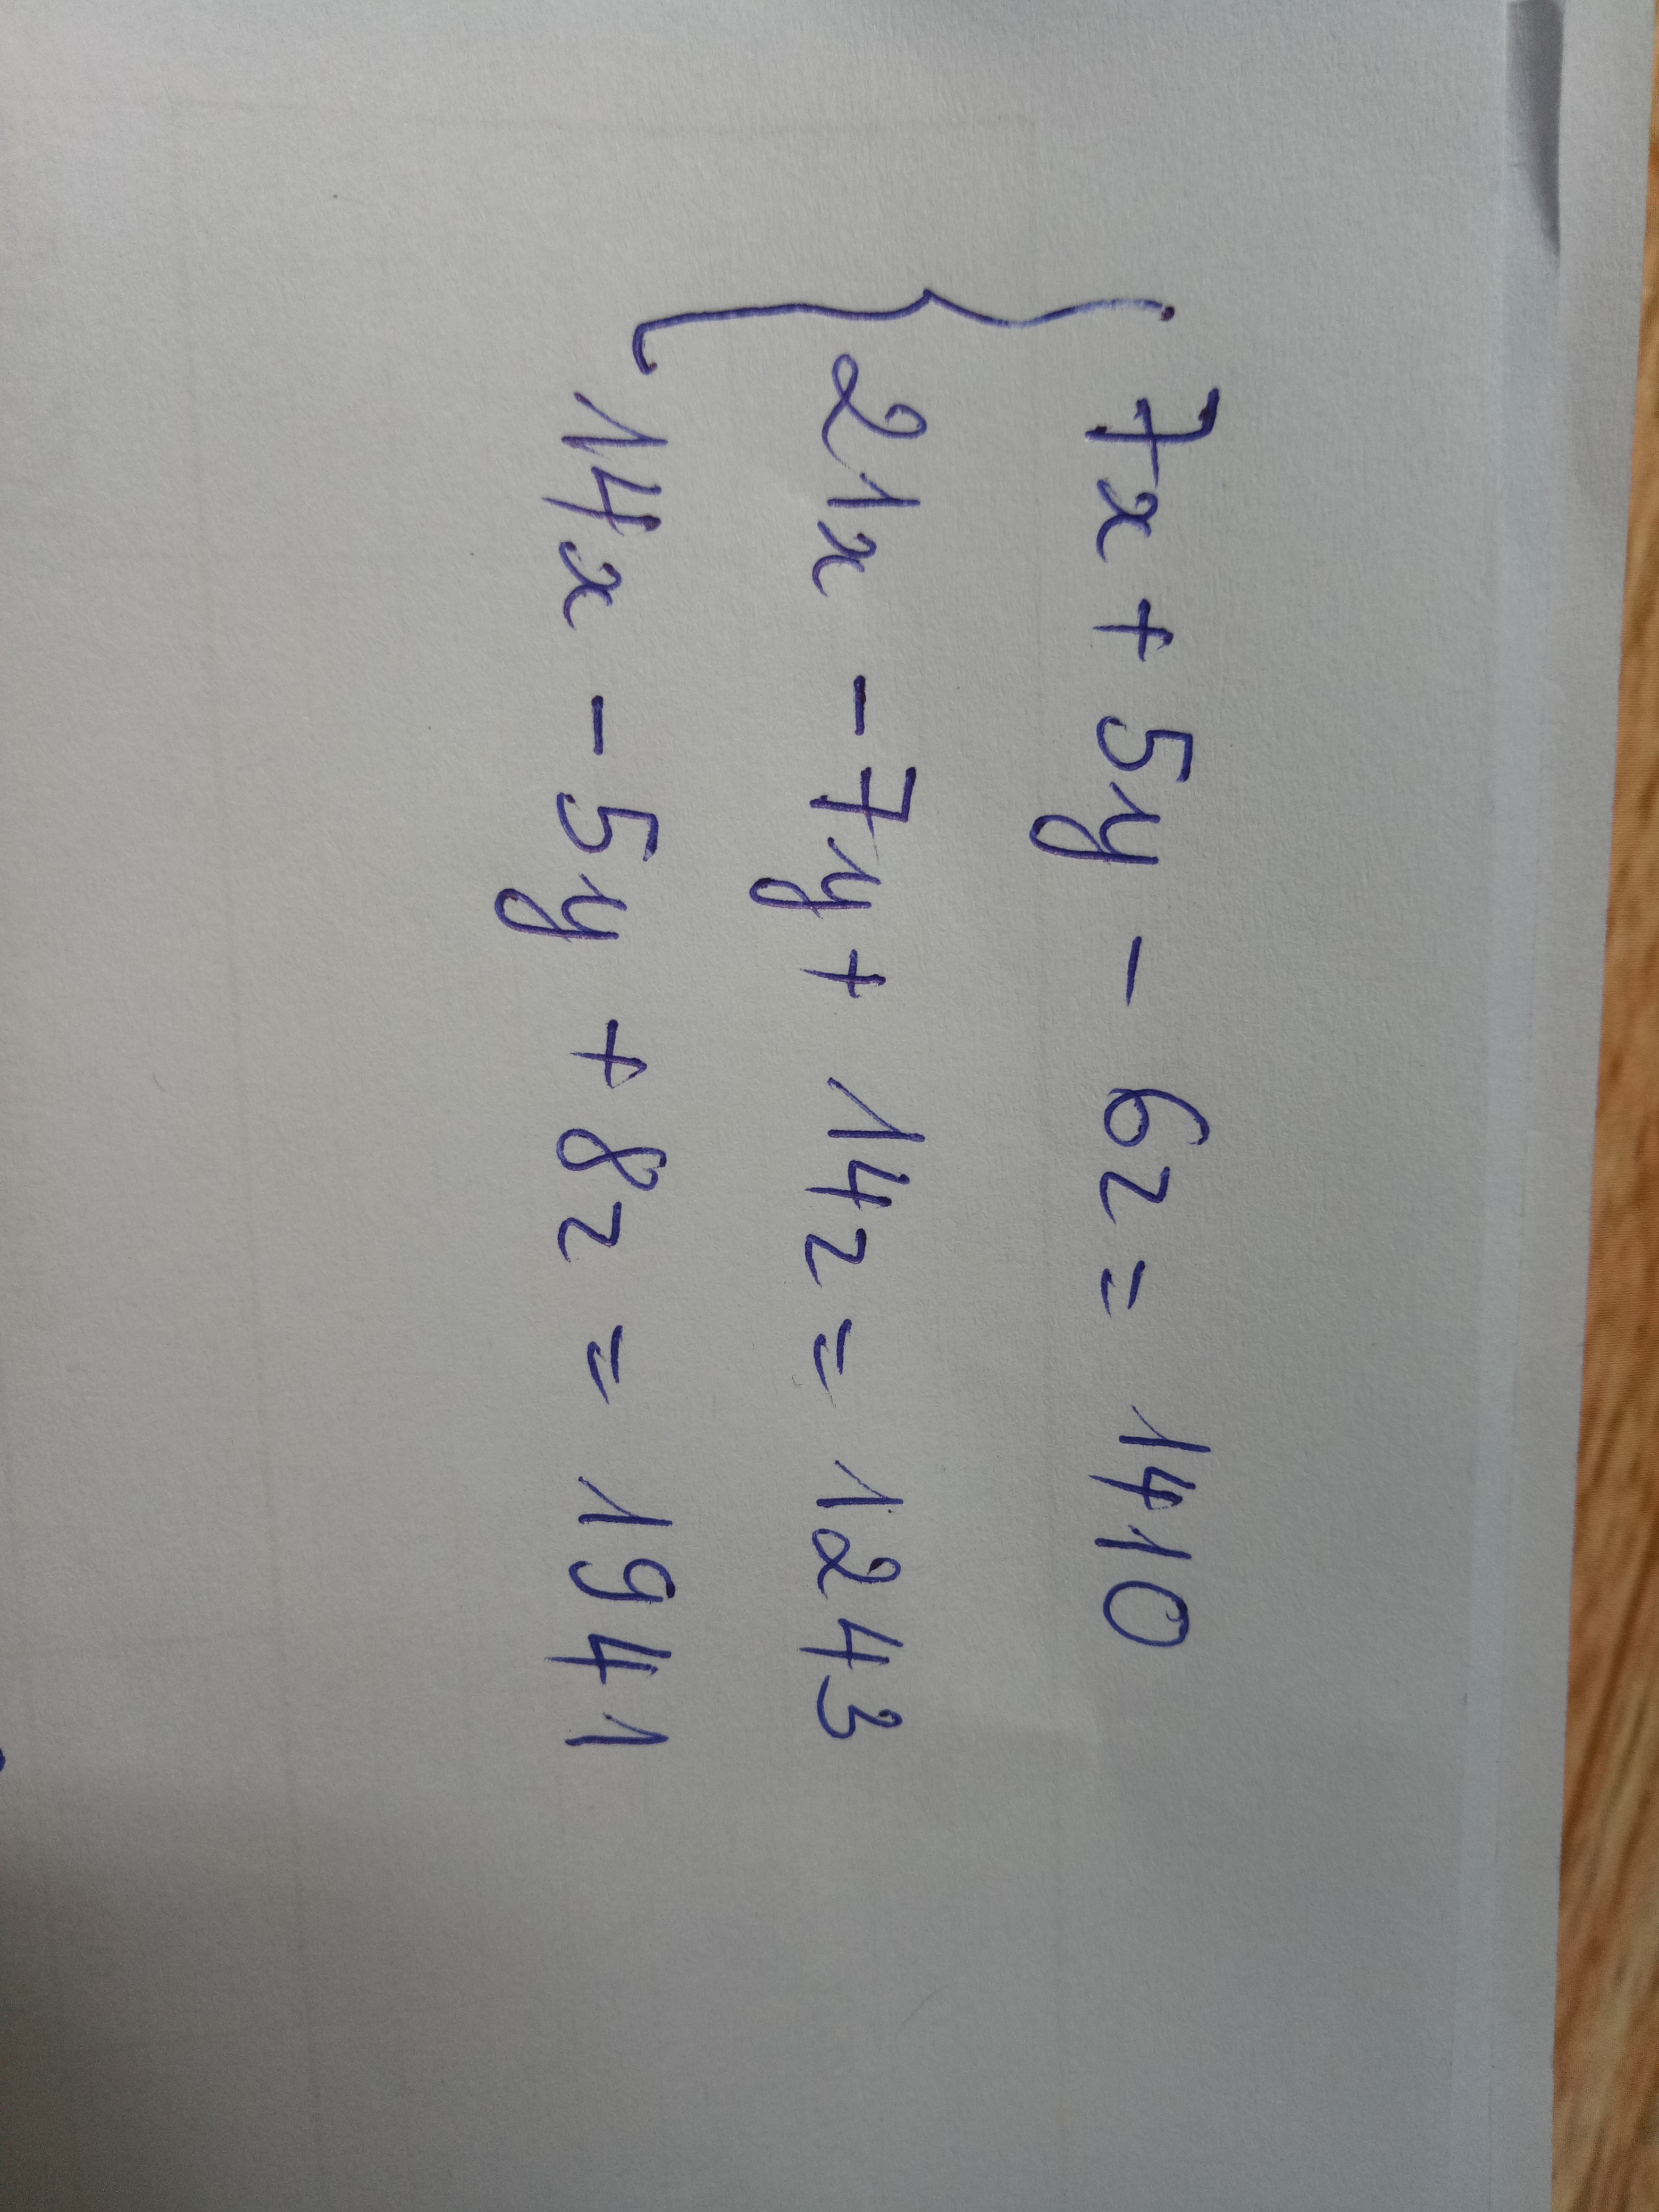 7x + 5y - 6z = 1410
21x - 7y + 14z = 1243
14x - 5y + 8z = 1941